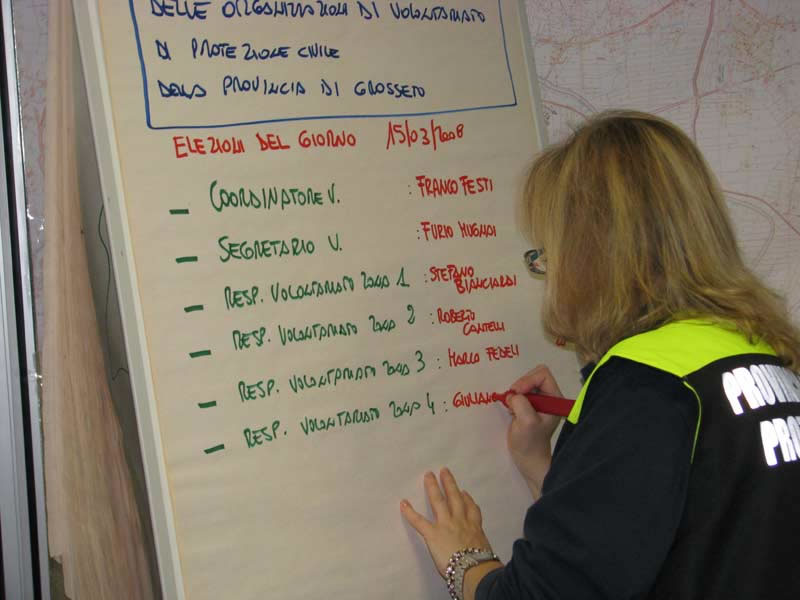 DELLE ORGANIZZAZIONI DI VOLONTARIATO
DI PROTEZIONE CIVILE
DELLA PROVINCIA DI GROSSETO
ELEZIONI DEL GIORNO 15/03/2008
– COORDINATORE V. : FRANCO FESTI
– SEGRETARIO V. : FURIO MUGNAI
– RESP. VOLONTARIATO ZONA 1 : STEFANO
BIANCIARDI
– RESP. VOLONTARIATO ZONA 2 : ROBERTO
CANTELLI
– RESP. VOLONTARIATO ZONA 3 : MARCO FEDELI
– RESP. VOLONTARIATO ZONA 4 : GIULIANO